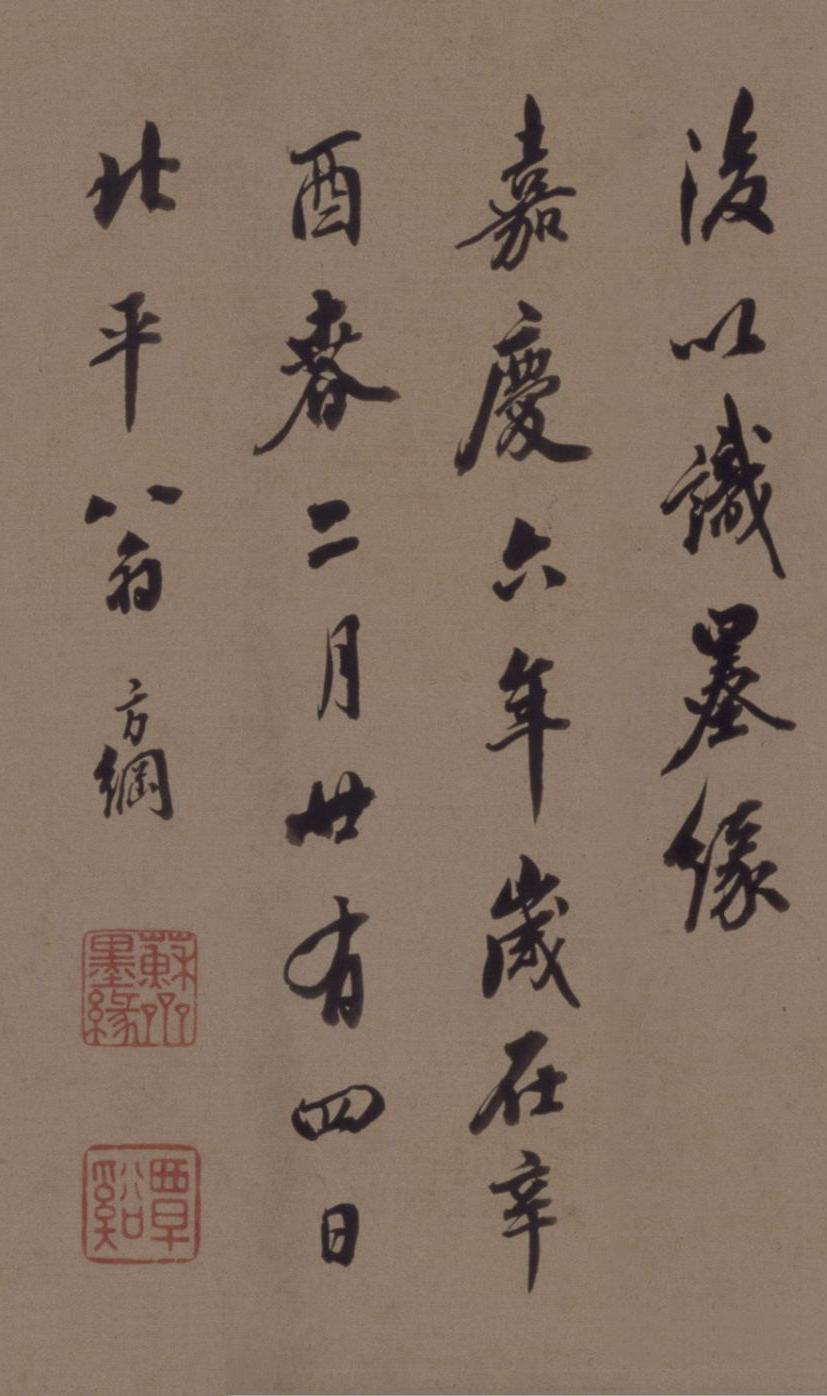 後以識墨緣
嘉慶六年歲在辛
酉春二月廿有四日
北平翁方綱
蘇齋墨緣
覃谿